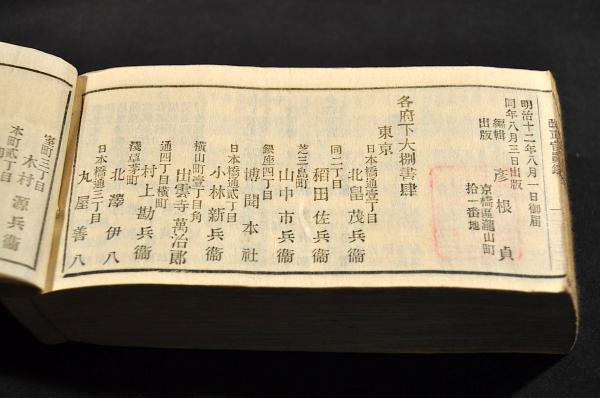 明治十二年八月一日御届
同年八月三日出版
編輯
出版
彦根貞
京橋區瀧山町
拾一番地
各府下大捌書肆
東京
日本橋通一丁目
北畠茂兵衞
同二丁目
稲田佐兵衞
芝三島町
山中市兵衞
銀座四丁目
博聞本社
日本橋通貳丁目
小林新兵衞
横山町壹丁目角
出雲寺萬治郎
通四丁目横町
村上勘兵衞
淺草茅町
北澤伊八
日本橋通三丁目
丸屋善八
室町三丁目
木村源兵衞
本町貳丁目